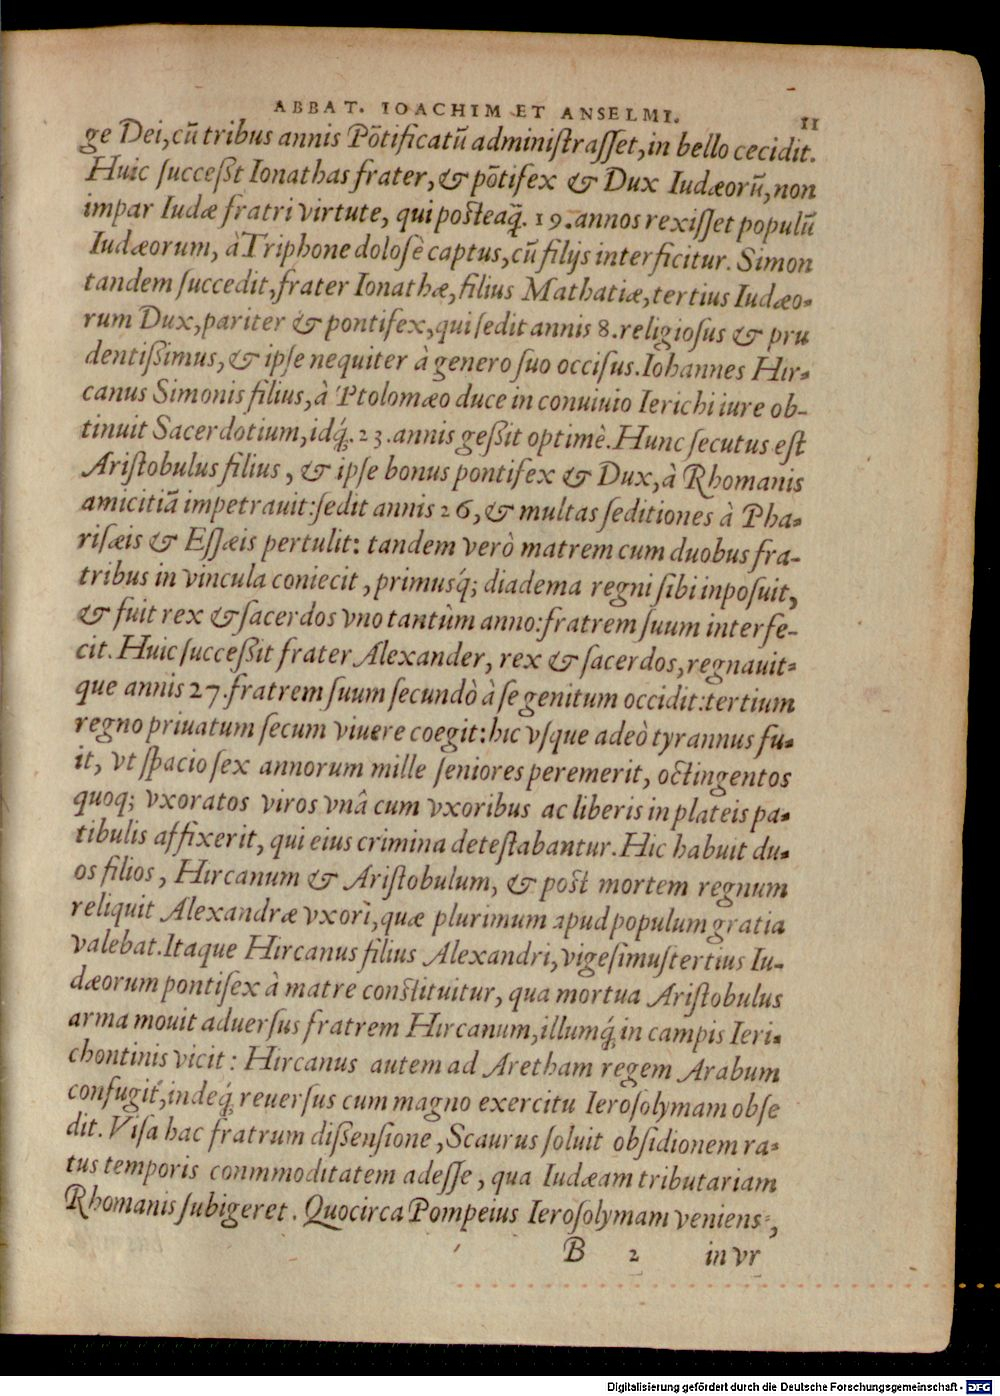 ABBAT. IOACHIM ET ANSELMI. 11
ge Dei, cũ tribus annis Põtificatũ administraſſet, in bello cecidit.
Huic ſucceßt Ionathas frater, & põtifex & Dux Iudæorũ, non
impar Iudæ fratri virtute, qui posteaq̃. 19. annos rexiſſet populũ
Iudæorum, à Triphone doloſè captus, cũ filijs interficitur. Simon
tandem ſuccedit, frater Ionathæ, filius Mathatiæ, tertius Iudæo-
rum Dux, pariter & pontifex, qui ſedit annis 8. religioſus & pru
dentißimus, & ipſe nequiter à genero ſuo occiſus. Iohannes Hir-
canus Simonis filius, à Ptolomæo duce in conuiuio Ierichi iure ob-
tinuit Sacerdotium, idq́. 23. annis geßit optimè. Hunc ſecutus eſt
Ariſtobulus filius, & ipſe bonus pontifex & Dux, à Rhomanis
amicitiã impetrauit: ſedit annis 26, & multas ſeditiones à Pha-
riſæis & Eſſæis pertulit: tandem verò matrem cum duobus fra-
tribus in vincula coniecit, primusq́; diadema regni ſibi inpoſuit,
& fuit rex & ſacerdos vno tantùm anno: fratrem ſuum interfe-
cit. Huic ſucceßit frater Alexander, rex & ſacerdos, regnauit-
que annis 27. fratrem ſuum ſecundò à ſe genitum occidit: tertium
regno priuatum ſecum viuere coegit: hic vſque adeò tyrannus fu-
it, vt ſpacio ſex annorum mille ſeniores peremerit, octingentos
quoq; vxoratos viros vnâ cum vxoribus ac liberis in plateis pa-
tibulis affixerit, qui eius crimina deteſtabantur. Hic habuit du-
os filios, Hircanum & Ariſtobulum, & post mortem regnum
reliquit Alexandræ vxorì, quæ plurimum apud populum gratia
valebat. Itaque Hircanus filius Alexandri, vigeſimuſtertius Iu-
dæorum pontifex à matre constituitur, qua mortua Ariſtobulus
arma mouit aduerſus fratrem Hircanum, illumq́ in campis Ieri-
chontinis vicit: Hircanus autem ad Aretham regem Arabum
confugit, indeq́ reuerſus cum magno exercitu Ieroſolymam obſe
dit. Viſa hac fratrum dißenſione, Scaurus ſoluit obſidionem ra-
tus temporis conmmoditatem adeſſe, qua Iudæam tributariam
Rhomanis ſubigeret. Quocirca Pompeius Ieroſolymam veniens,
B 2 in vr
Digitalisierung gefördert durch die Deutsche Forschungsgemeinschaft - DFG